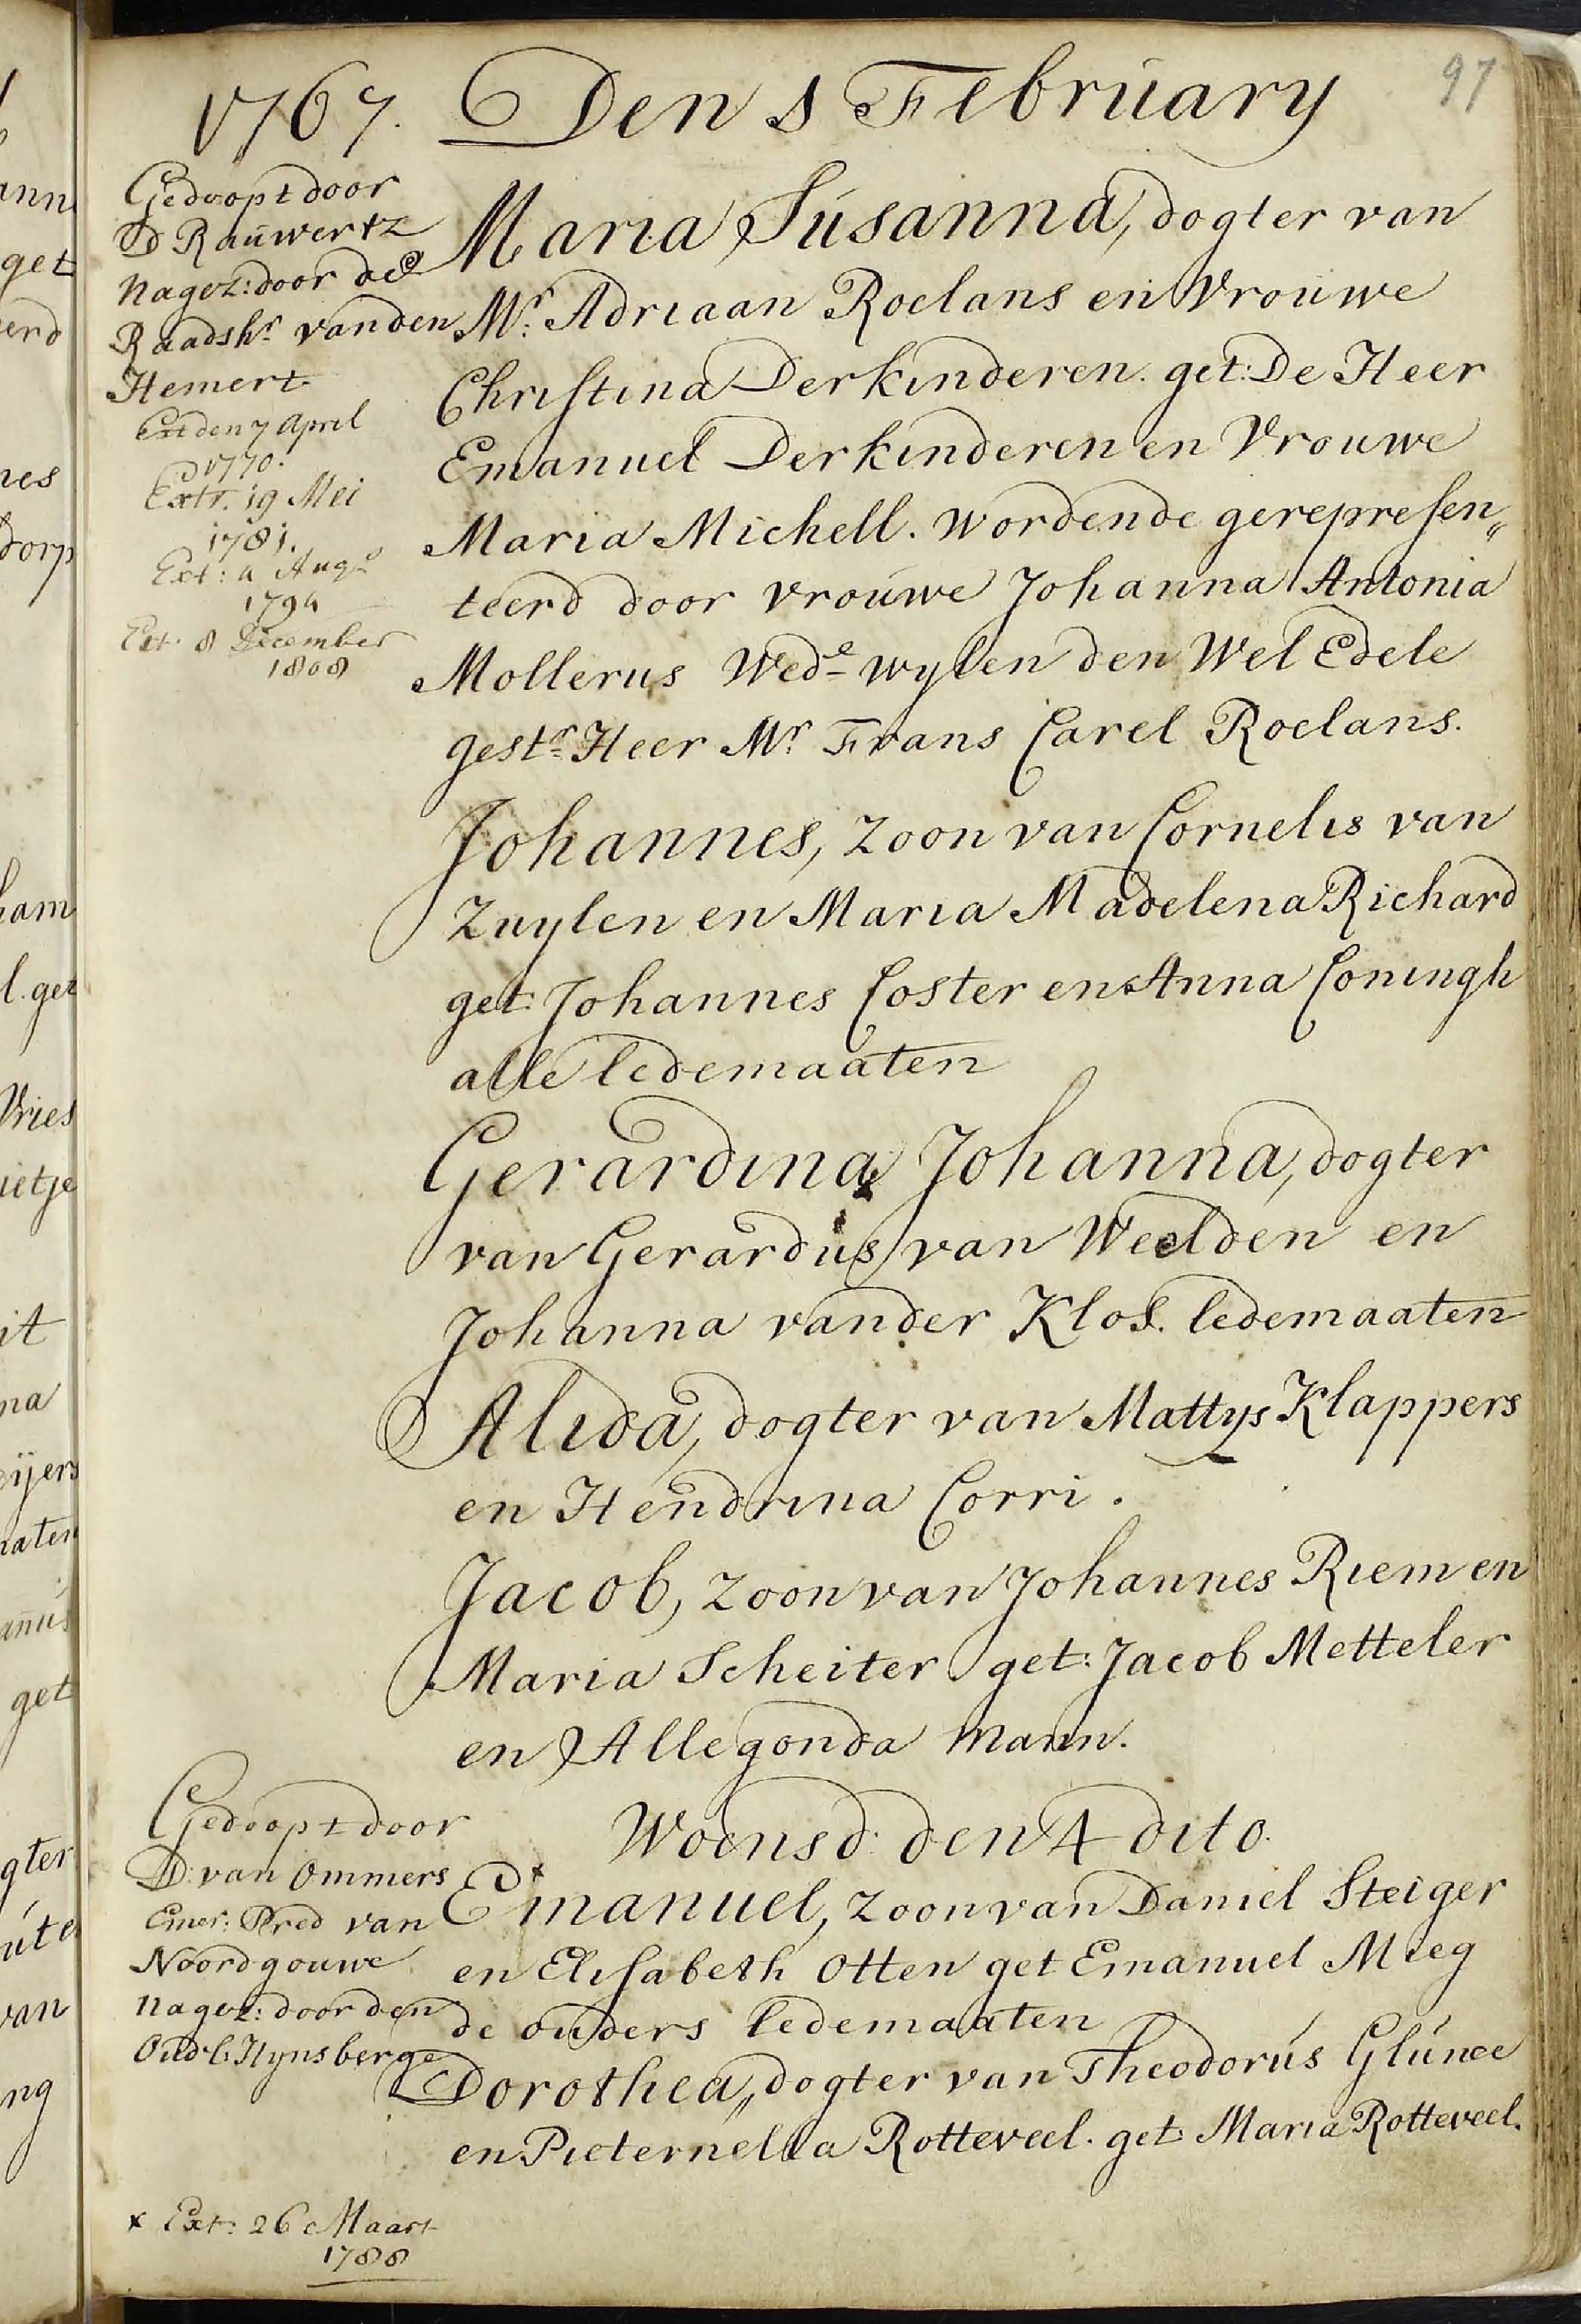 97
1767. Den 1 February
Gedoopt door
D Rauwertz
Nagez: door de
Raadshr. vanden
Hemert
Ext den 7 April
1770.
Extr. 19 Mei
1781.
Ext: 4 Augo
1794
Ext. 8 December
1808
Maria Susanna, dogter van
Mr. Adriaan Roelans en Vrouwe
Christina Derkinderen. get: De Heer
Emanuel Derkinderen en Vrouwe
Maria Michell. wordende gerepresen„
teerd door vrouwe Johanna Antonia
Mollerus Wede wylen den Wel Edele
gestr. Heer Mr. Frans Carel Roelans.
Johannes, zoon van Cornelis van
Zuylen en Maria Madelena Richard
get: Johannes Coster en Anna Coningh
alle ledemaaten
Gerardina Johanna, dogter
van Gerardus van Weelden en
Johanna vander Klos. ledemaaten
Alida, dogter van Mattys Klappers
en Hendrina Corri.
Jacob, zoon van Johannes Riem en
Maria Scheiter get: Jacob Metteler
en Allegonda Mann.
Woensd: den 4 dito.
Gedoopt door
D: van Ommers
Emer: Pred van
Noordgouwe
nagez: door den
Oudl: Hynsberge
x
Emanuel, zoon van Daniel Steiger
en Elisabeth Otten get Emanuel Mieg
de ouders ledemaaten
Dorothea, dogter van Theodorus Glúnee
en Pieternella Rotteveel. get: Maria Rotteveel.
x Ext: 26 Maart
1788